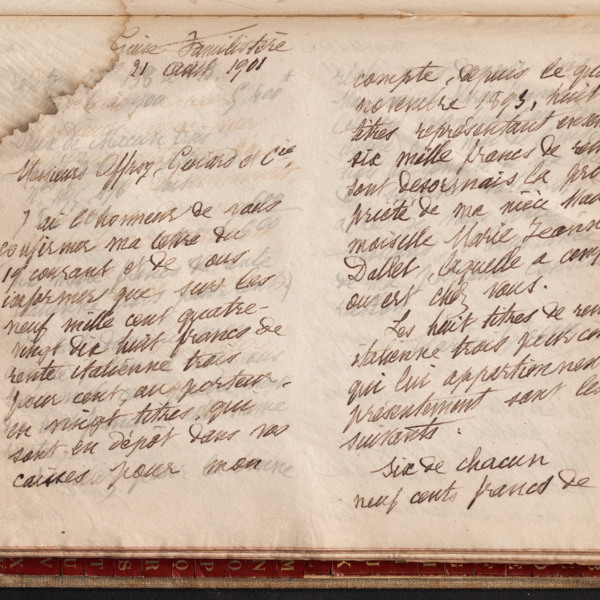 Guise Familistère
21 août 1901
Messieurs Offroy, Guiard et Cie,
J'ai l'honneur de vous
confirmer ma lettre du
19 courant et de vous
informer que sur les
neuf mille cent quatre-
vingt dix huit francs de
rente italienne trois
pour cent au porteur
en vingt titres qui
sont en dépôt dans vos
caisses pour mon
compte, depuis le
novembre 1893, huit
titres représentant
six mille francs de
sont désormais la pro
priété de ma nièce
moiselle Marie Jeanne
Dallet, laquelle a
ouvert chez vous.
Les huit titres de
italienne trois pour
qui lui appartiennent
présentement sont
suivants :
Six de chacun
neuf cents francs de